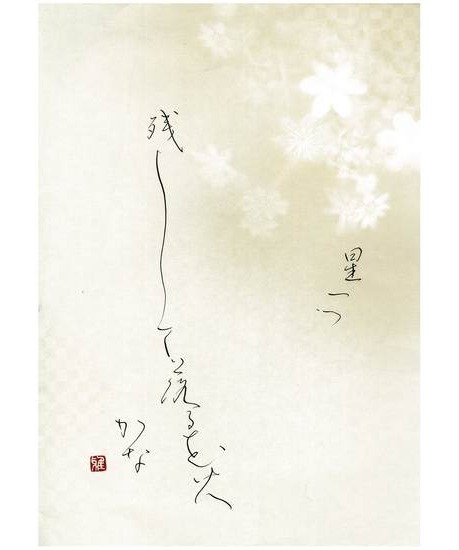 星一つ
残して落る花火
かな